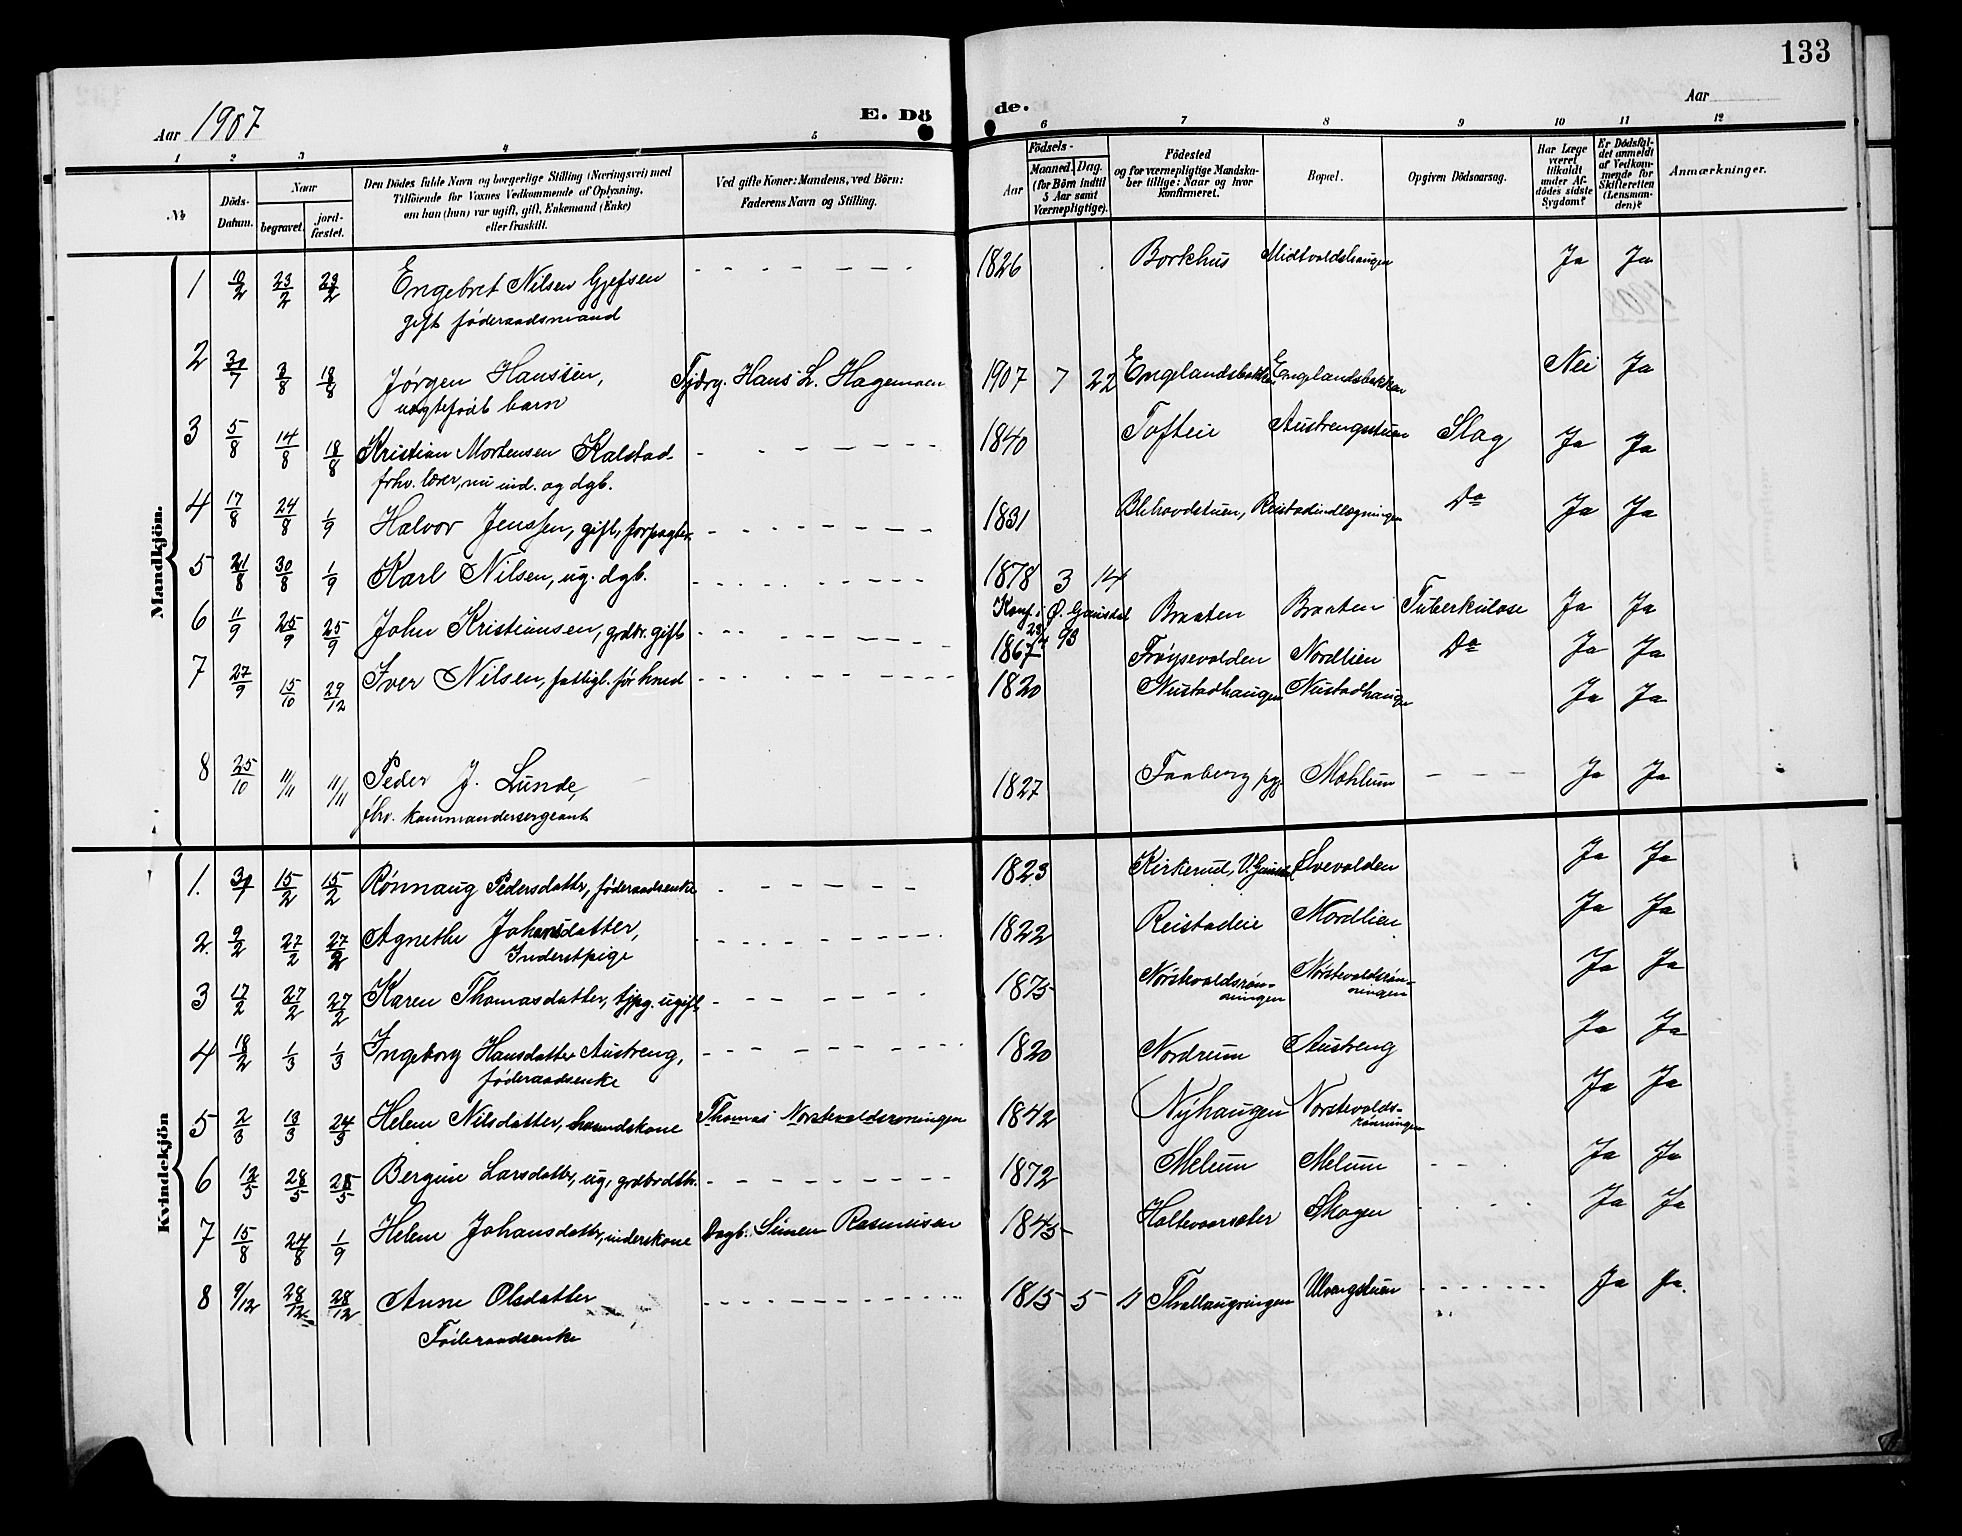 133
Aar 1907 E. Dö de. Aar
1 2 3 4 5 6 7 8 9 10 11 12
№
Döds-Datum.
Naar
begravet.
jord-fæstet.
Den Dödes fulde Navn og borgerlige Stilling (Næringsvei) med
Tilföiende for Voxnes Vedkommende af Oplysning,
om han (hun) var ugift, gift, Enkemand (Enke)
eller fraskilt.
Ved gifte Koner: Mandens, ved Börn:
Faderens Navn og Stilling.
Födsels-
Aar
Maaned. Dag.
(for Börn indtil
5 Aar samt
Værnepligtige).
Födested
og for værnepligtige Mandska-
ber tillige: Naar og hvor
konfirmeret.
Bopæl.
Opgiven Dödsaarsag.
Har Læge
været
tilkaldt
under Af-
dödes sidste
Sygdom?
Er Dödsfal-
det anmeldt
af Vedkom-
mende for
Skifteretten
(Lensman-
den)?
Anmærkninger.
Mandkjön.
1 19/2 23/2 23/2 Engebret Nilsen Gjefsen 1826 Borkhus Midtvoldshaugen Ja Ja
gift föderaadsmand
1908
2 30/7 3/8 18/8 Jørgen Hanssen, Tjdrg. Hans L. Hagemoen 1907 7 22 Englandsbakken Englandsbakken Nei Ja
uægtefödt barn
3 5/8 14/8 18/8 Kristian Mortensen Kalstad 1840 Tofteie Austrengsstuen Slag Ja Ja
fhv. lærer, nu ind. og dgb.
4 17/8 24/8 1/9 Halvor Jenssen, gift, forpagter 1831 Reistadindlægningen Do Ja Ja
5 21/8 30/8 1/9 Karl Nilsen, ug. dgb. 1878 3 14 Braaten Braaten Tuberkulose Ja Ja
Konf. i Ø. Gausdal
23/4 93
6 11/9 25/9 25/9 John Kristiansen, grdbr. gift 1867 Frøysevolden Nordlien Do Ja Ja
7 27/9 15/10 29/12 Iver Nilsen, fattigl. för hmd 1820 Neustadhaugen Neustadhaugen Ja Ja
8 25/10 11/11 11/11 Peder J. Lunde, 1827 Faaberg pgj. Mæhlum Ja Ja
fhv. kommandersergeant
Kvindekjön
1. 31/1 15/2 15/2 Rønnaug Pedersdatter, föderaadsenke 1823 Kirkerud, V. Gausdal Ulvevolden Ja Ja
2. 9/2 27/2 27/2 Agnethe Johansdatter, 1822 Reistadeie Nordlien Ja Ja
Inderstpige
3 17/2 27/2 27/2 Karen Thomasdatter, tjpg. ugift 1875 Norstevoldsrøn- Norstevoldsrøn- Ja Ja
ningen ningen
4 18/2 1/3 1/3 Ingeborg Hansdatter Austreng, 1820 Nordrum Austreng Ja Ja
föderaadsenke
5 2/3 13/3 24/3 Helene Nilsdatter, husmandskone Thomas Norstevoldsroningen 1842 Nyhaugen Norstevolds- Ja Ja
rønningen
6 12/5 28/5 28/5 Bergine Larsdatter, ug. grdbrdtr. 1872 Melum Melum Ja Ja
7 15/8 24/8 1/9 Helene Johansdatter, inderskone Dagb. Simen Rasmusen 1845 Holtevoarsæter Skogen Ja Ja
8 9/12 28/12 28/12 Anne Olsdatter 1815 5 11 Ulvangstuen Ja Ja.
Föderaadsenke